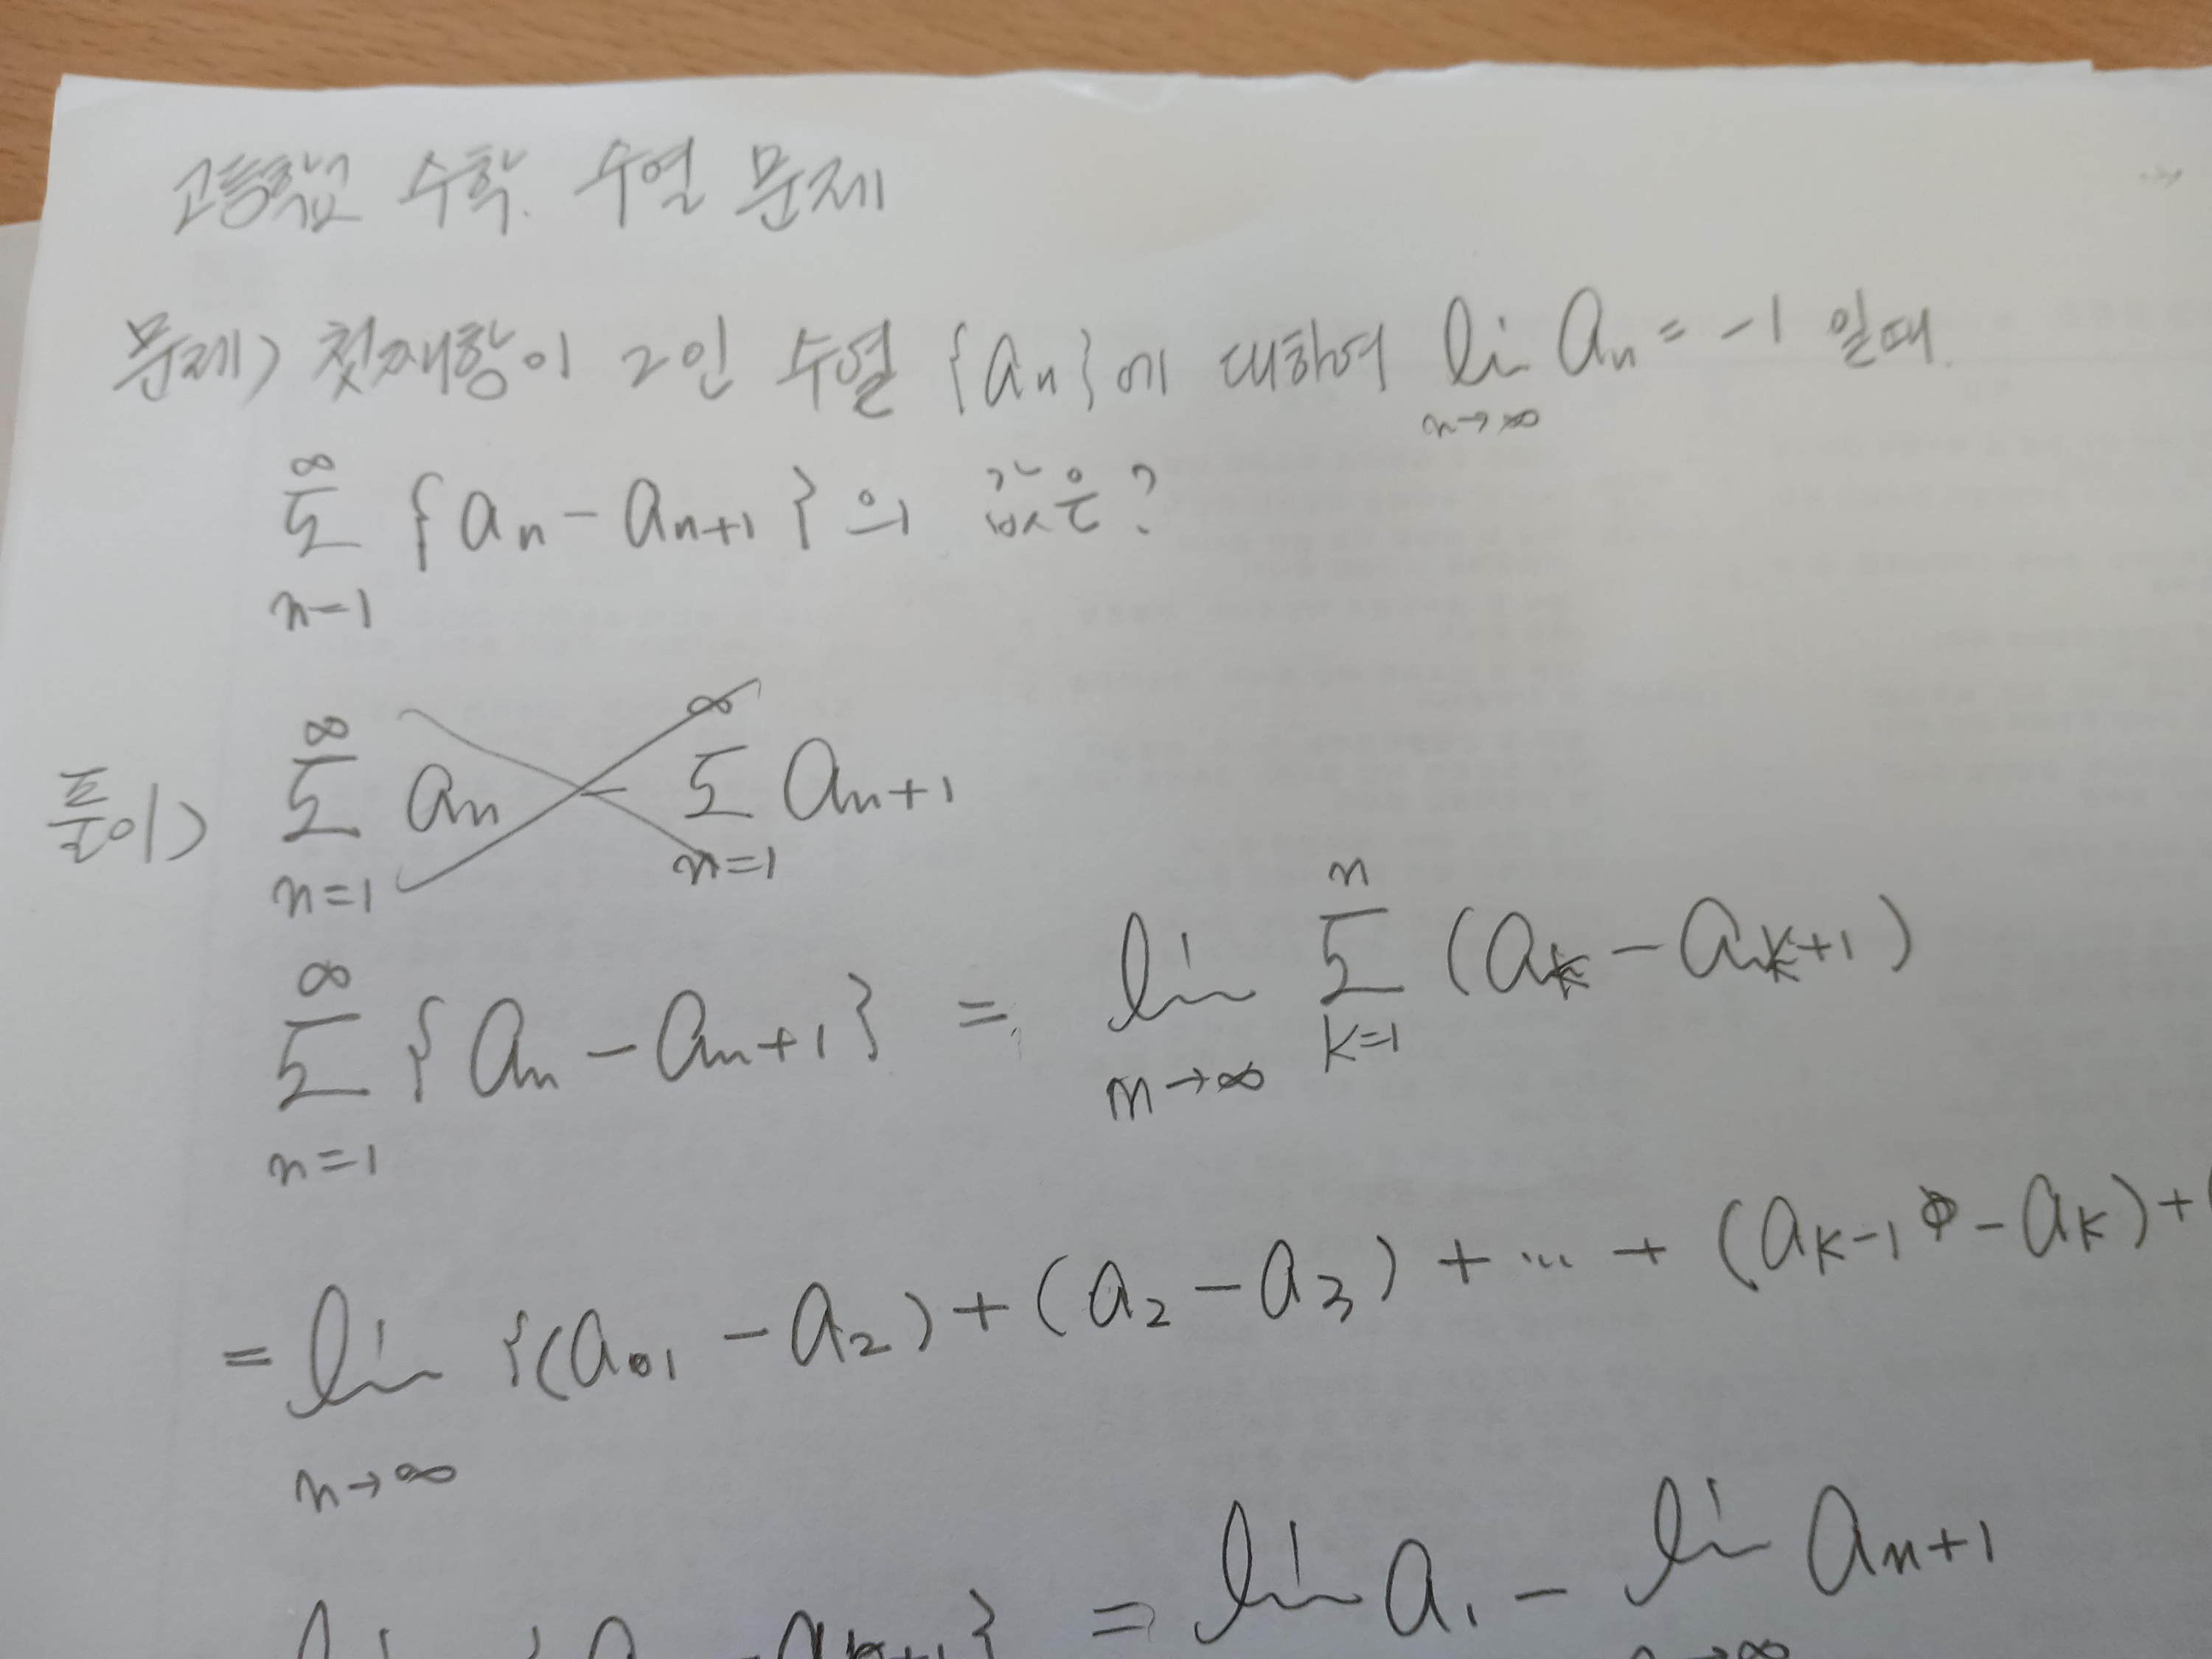 고등학교 수학. 수열 문제
문제) 첫째항이 2인 수열 {aₙ}에 대하여 lim n→∞ aₙ = -1 일때.
∞ Σ n=1 {aₙ - aₙ₊₁}의 값은?
풀이) ∞ Σ n=1 aₙ - ∞ Σ n=1 aₙ₊₁
∞ Σ n=1 {aₙ - aₙ₊₁} = lim n→∞ n Σ k=1 (aₖ - aₖ₊₁)
= lim n→∞ {(a₁ - a₂) + (a₂ - a₃) + ... + (aₖ₋₁ - aₖ) + (
= lim a₁ - lim n→∞ aₙ₊₁